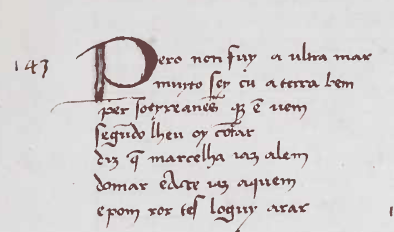 143 Pero non fuy a ultra mar
muyto sey eu a terra bem
per soeyreanes q̄ ē uem
segūdo lheu oy cōtar
diz q̄ marcelha iaz alem
domar eAcre iaz aquem
epom ror tes loguy arar